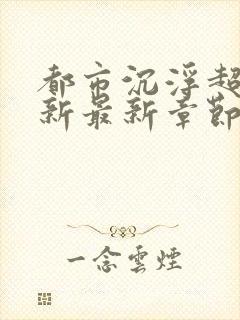 都市沉浮超
新最新章節
一念雲煙